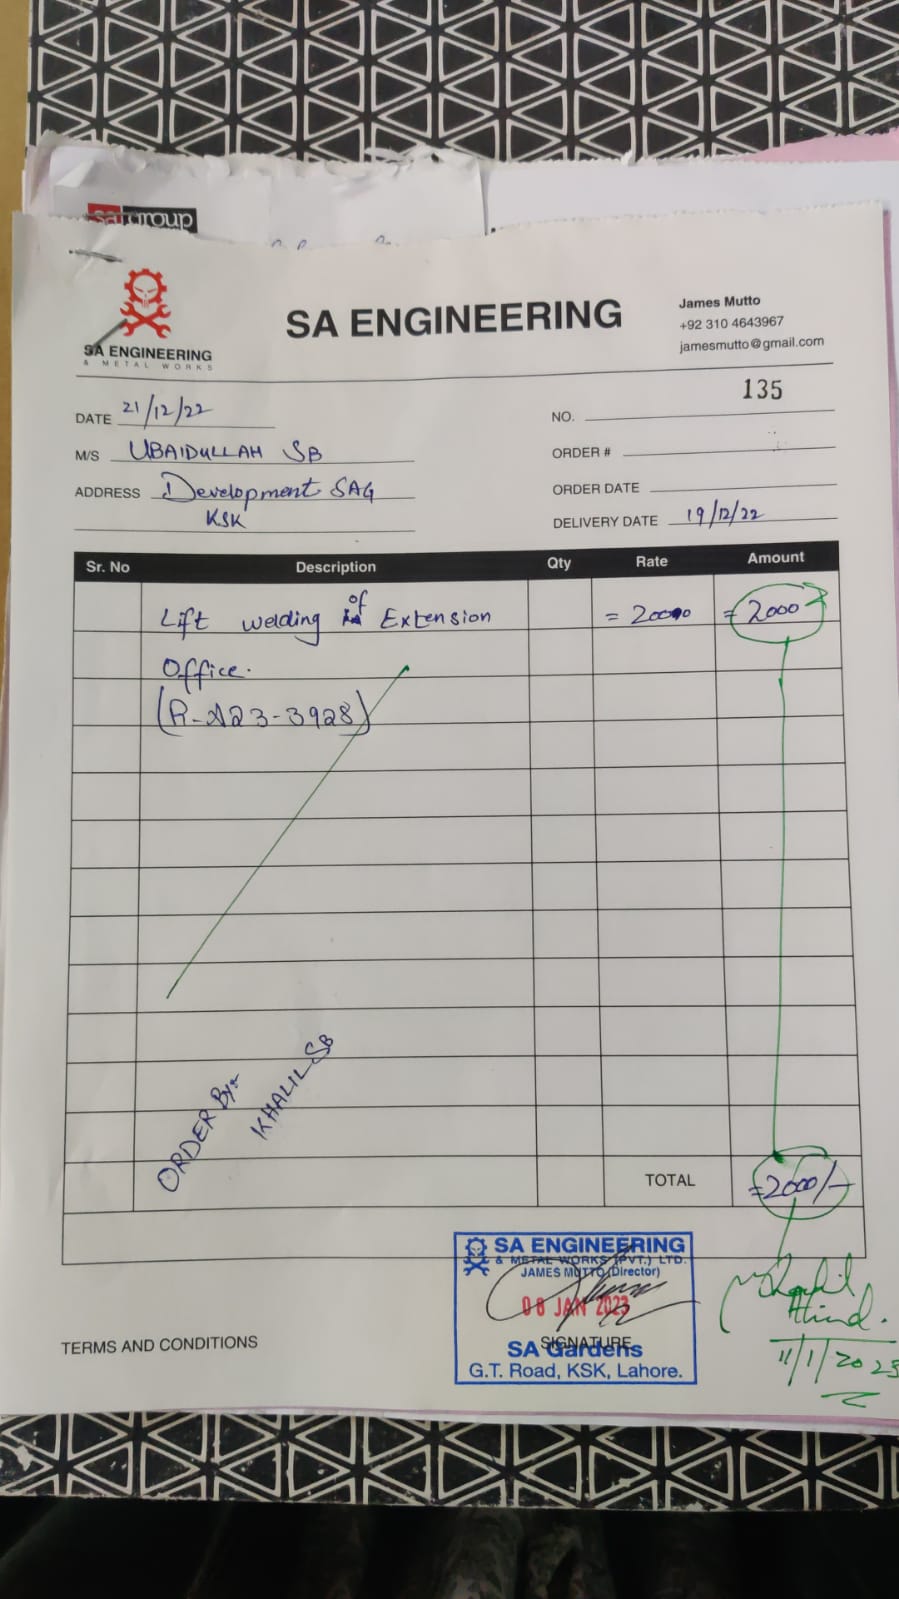 sa group
SA ENGINEERING
& METAL WORKS
SA ENGINEERING
James Mutto
+92 310 4643967
jamesmutto@gmail.com
135
DATE 21/12/22
NO.
M/S UBAIDULLAH SB
ORDER #
ADDRESS Development SAG
KSK
ORDER DATE
DELIVERY DATE 19/12/22
Sr. No Description Qty Rate Amount
Lift welding of Extension = 2000 = 2000
Office.
ORDER By:-
KHALIL SB
TOTAL =2000/-
SA ENGINEERING
& METAL WORKS (PVT.) LTD.
JAMES MUTTO (Director)
08 JAN 2023
SIGNATURE
SA Gardens
G.T. Road, KSK, Lahore.
TERMS AND CONDITIONS
11/1/2023